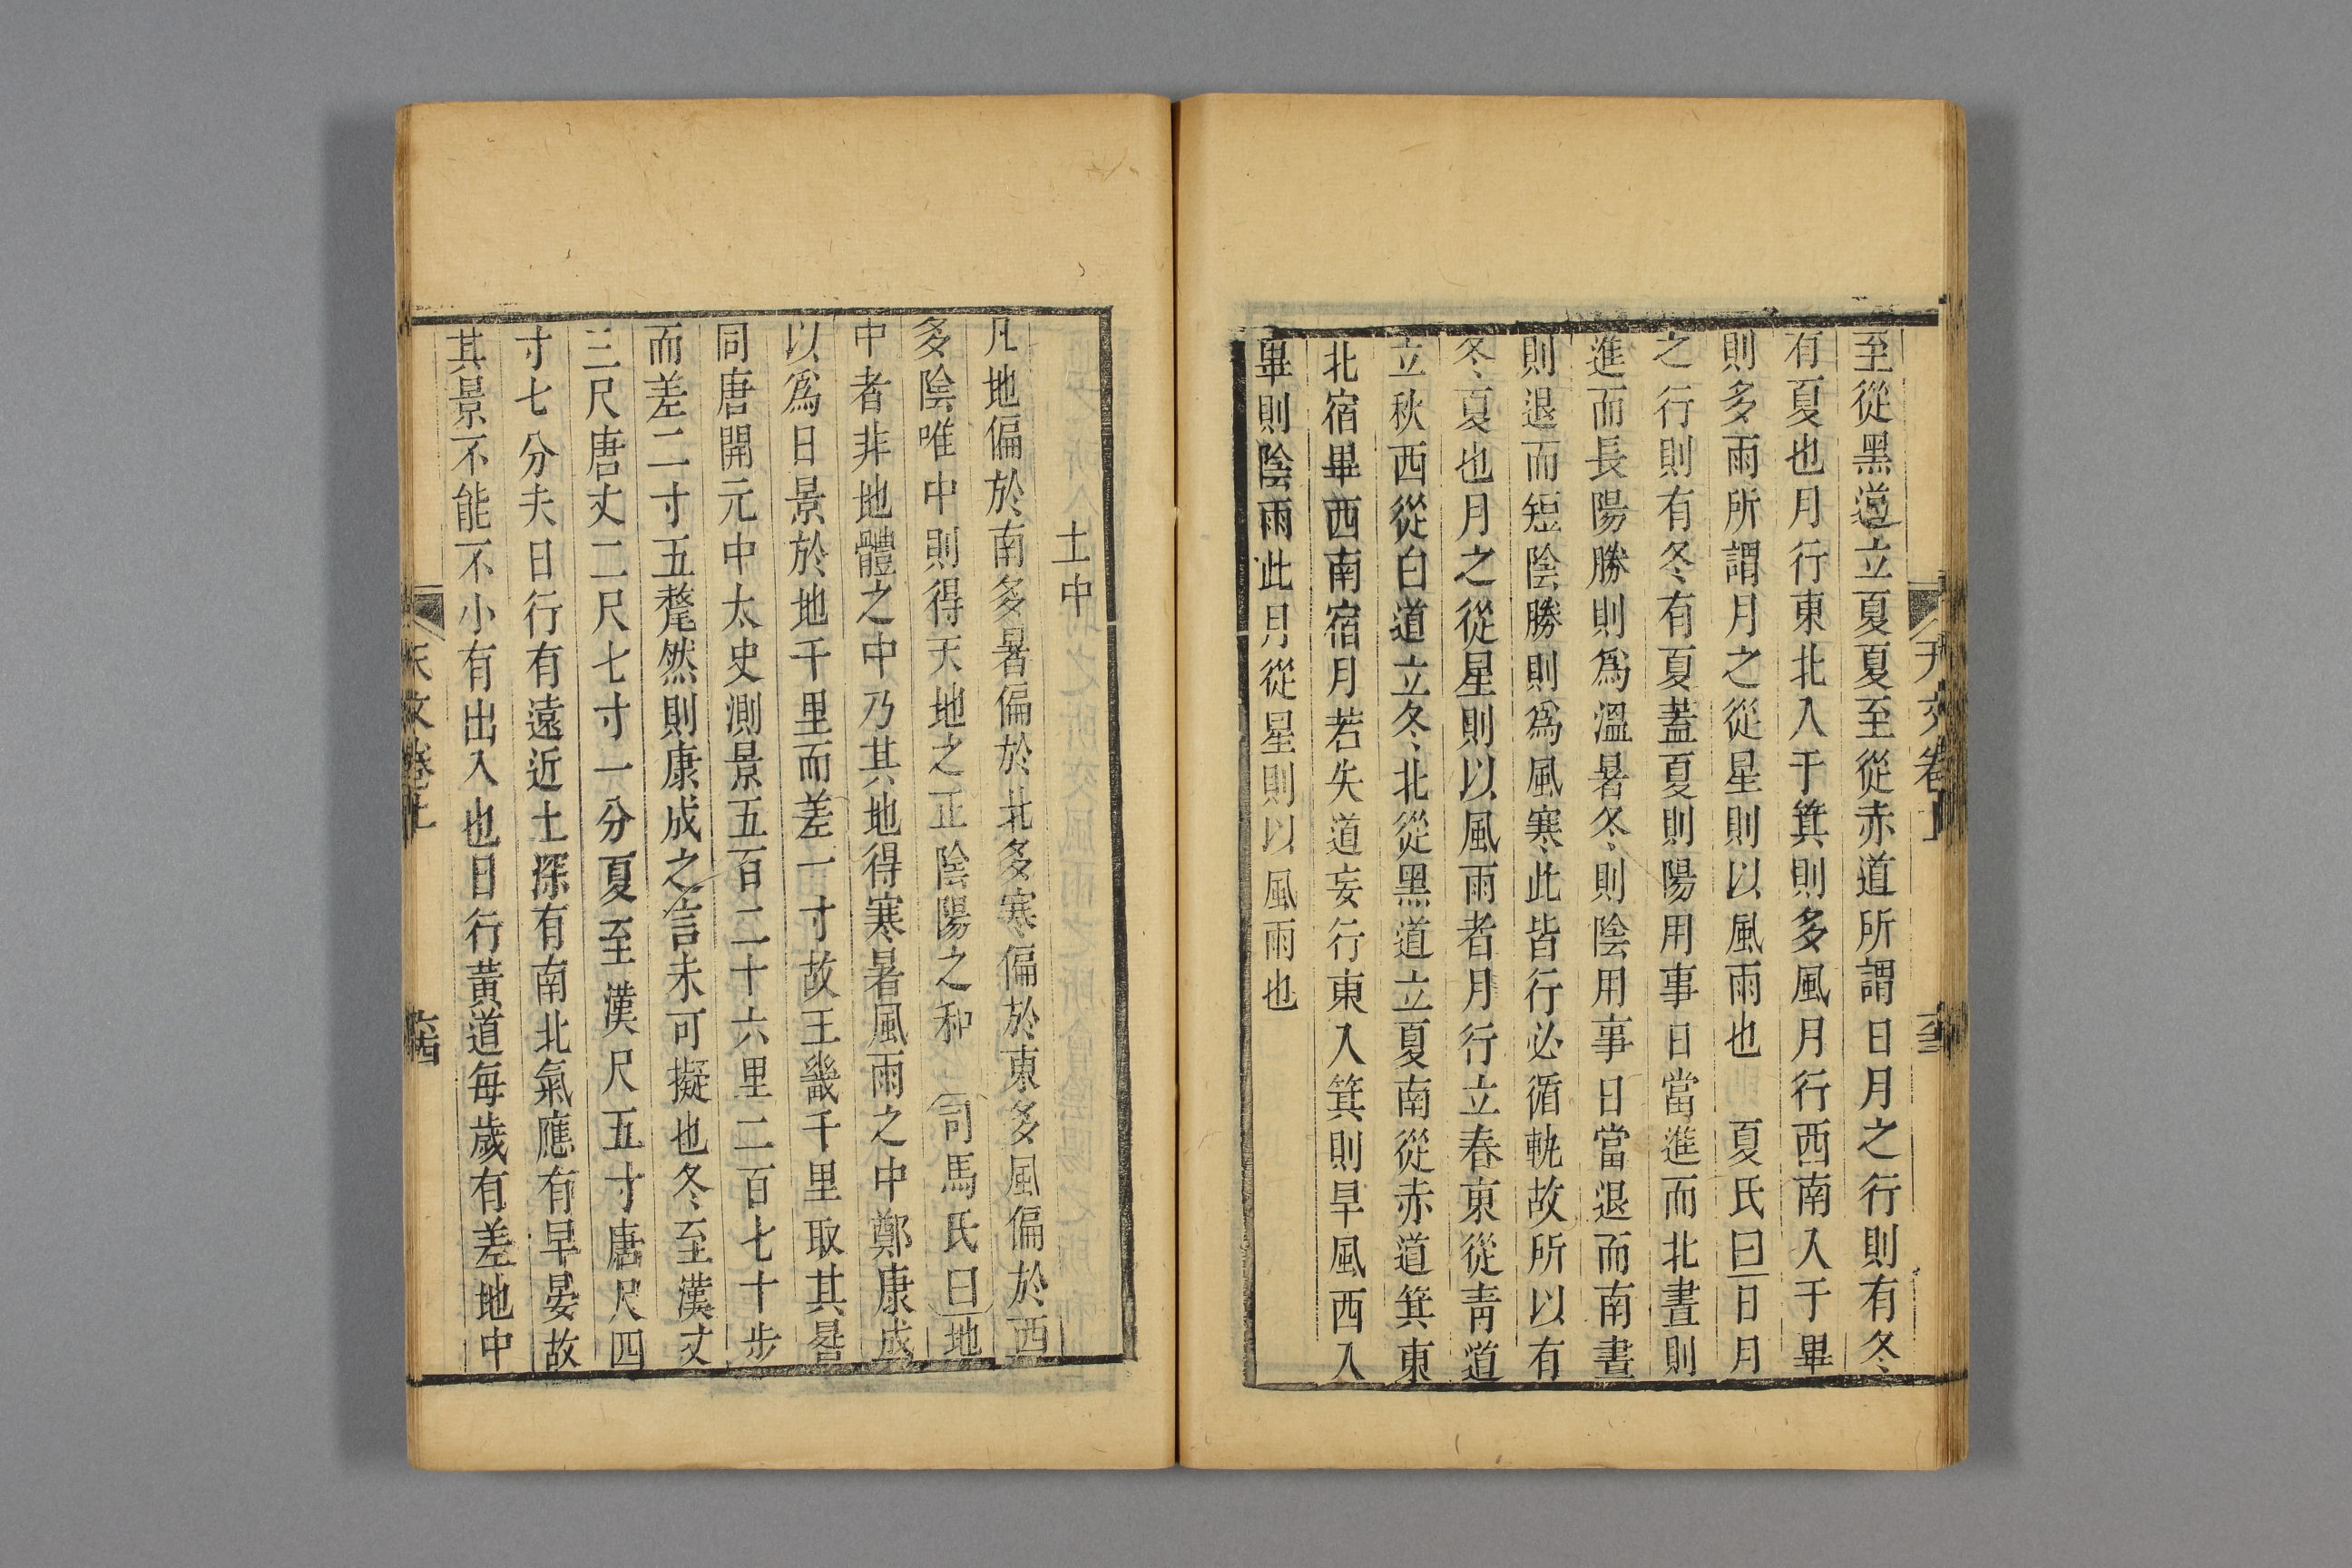 至從黑道立夏夏至從赤道所謂日月之行則有冬
有夏也月行東北入于箕則多風月行西南入于畢
則多雨所謂月之從星則以風雨也 夏氏曰日月
之行則有冬有夏蓋夏則陽用事日當進而北晝則
進而長陽勝則爲溫暑冬則陰用事日當退而南晝
則退而短陰勝則爲風寒此皆行必循軌故所以有
冬夏也月之從星則以風雨者月行立春東從靑道
立秋西從白道立冬北從黑道立夏南從赤道箕東
北宿畢西南宿月若失道妄行東入箕則旱風西入
畢則陰雨此月從星則以風雨也
土中
凡地偏於南多暑偏於北多寒偏於東多風偏於西
多陰唯中則得天地之正陰陽之和 司馬氏曰地
中者非地體之中乃其地得寒暑風雨之中鄭康成
以爲日景於地千里而差一寸故王畿千里取其晷
同唐開元中太史測景五百二十六里二百七十步
而差二寸五氂然則康成之言未可擬也冬至漢丈
三尺唐丈二尺七寸一分夏至漢尺五寸唐尺四
寸七分夫日行有遠近土深有南北氣應有早晏故
其景不能不小有出入也日行黃道每歲有差地中
天文卷上